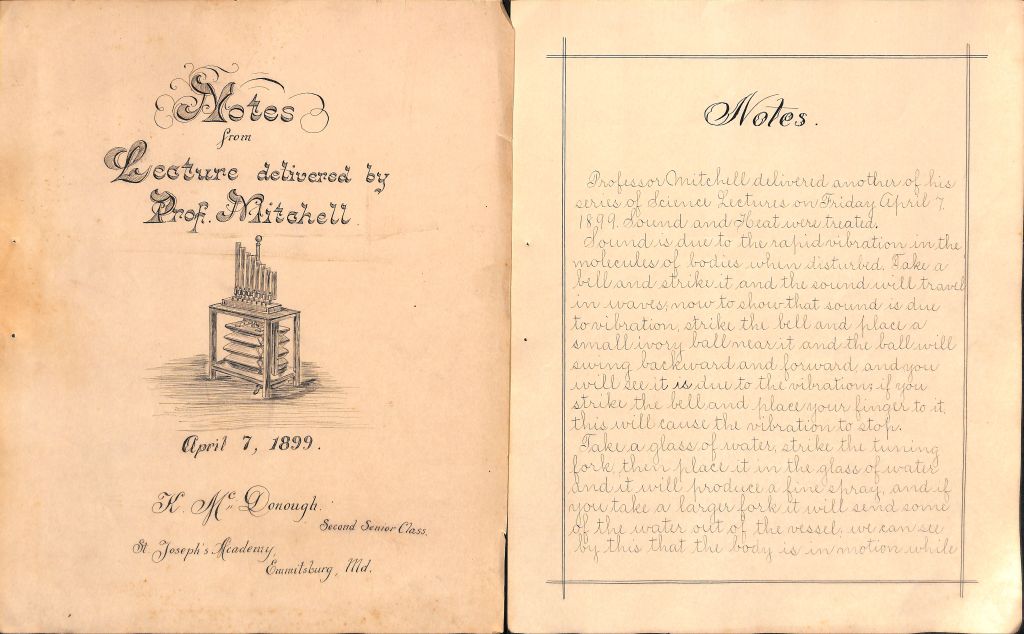 Notes
from
Lecture delivered by
Prof. Mitchell.
April 7, 1899.
K. Mc Donough.
Second Senior Class.
St. Joseph's Academy,
Emmitsburg, Md.
Notes.
Professor Mitchell delivered another of his
series of Science Lectures on Friday April 7.
1899. Sound and Heat were treated.
Sound is due to the rapid vibration in the
molecules of bodies when disturbed. Take a
bell and strike it and the sound will travel
in waves; now to show that sound is due
to vibration, strike the bell and place a
small ivory ball near it and the ball will
swing backward and forward and you
will see it is due to the vibration; if you
strike the bell and place your finger to it,
this will cause the vibration to stop.
Take a glass of water, strike the tuning
fork, then place it in the glass of water
and it will produce a fine spray, and if
you take a larger fork it will send some
of the water out of the vessel, we can see
by this that the body is in motion while